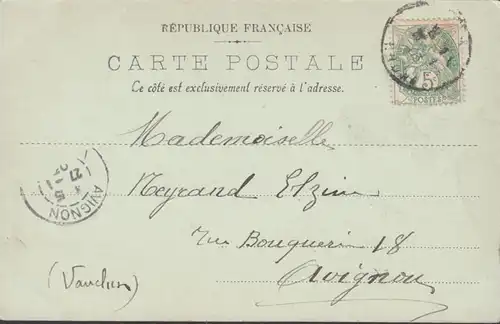 RÉPUBLIQUE FRANÇAISE
CARTE POSTALE
Ce côté est exclusivement réservé à l'adresse.
5
POSTES
Mademoiselle
Meyrand Elzim
AVIGNON
rue Bouquerie 18
Avignon
(Vaucluse)